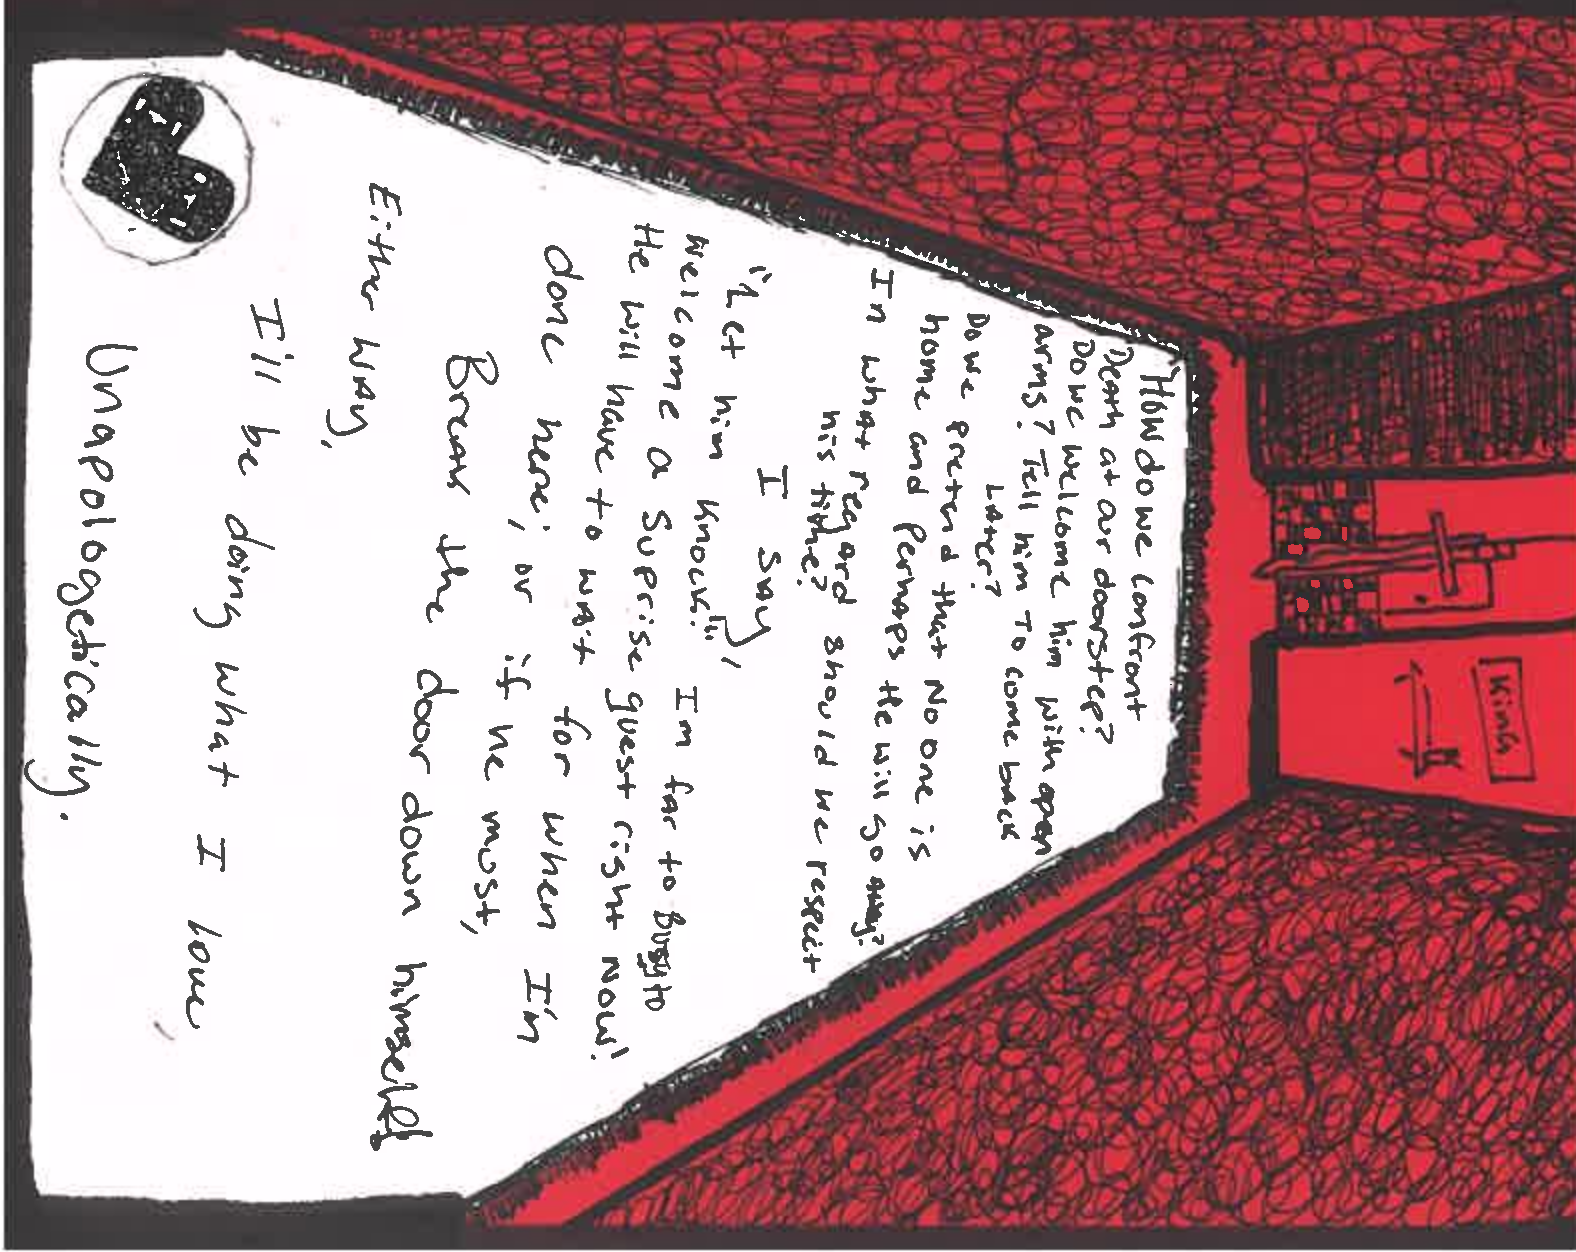 KING
"How do we confront
Death at our doorstep?
Do we welcome him with open
arms? Tell him To come back
Later?
Do we pretend that No one is
home and perhaps He will go away?
In what regard should we respect
his time?
I say,
"Let him knock!"
I'm far to Busy to
Welcome a Suprise guest right Now!
He will have to wait for when I'm
done here, or if he must,
Break the door down himself
Either way,
I'll be doing what I love,
Unapologetically.